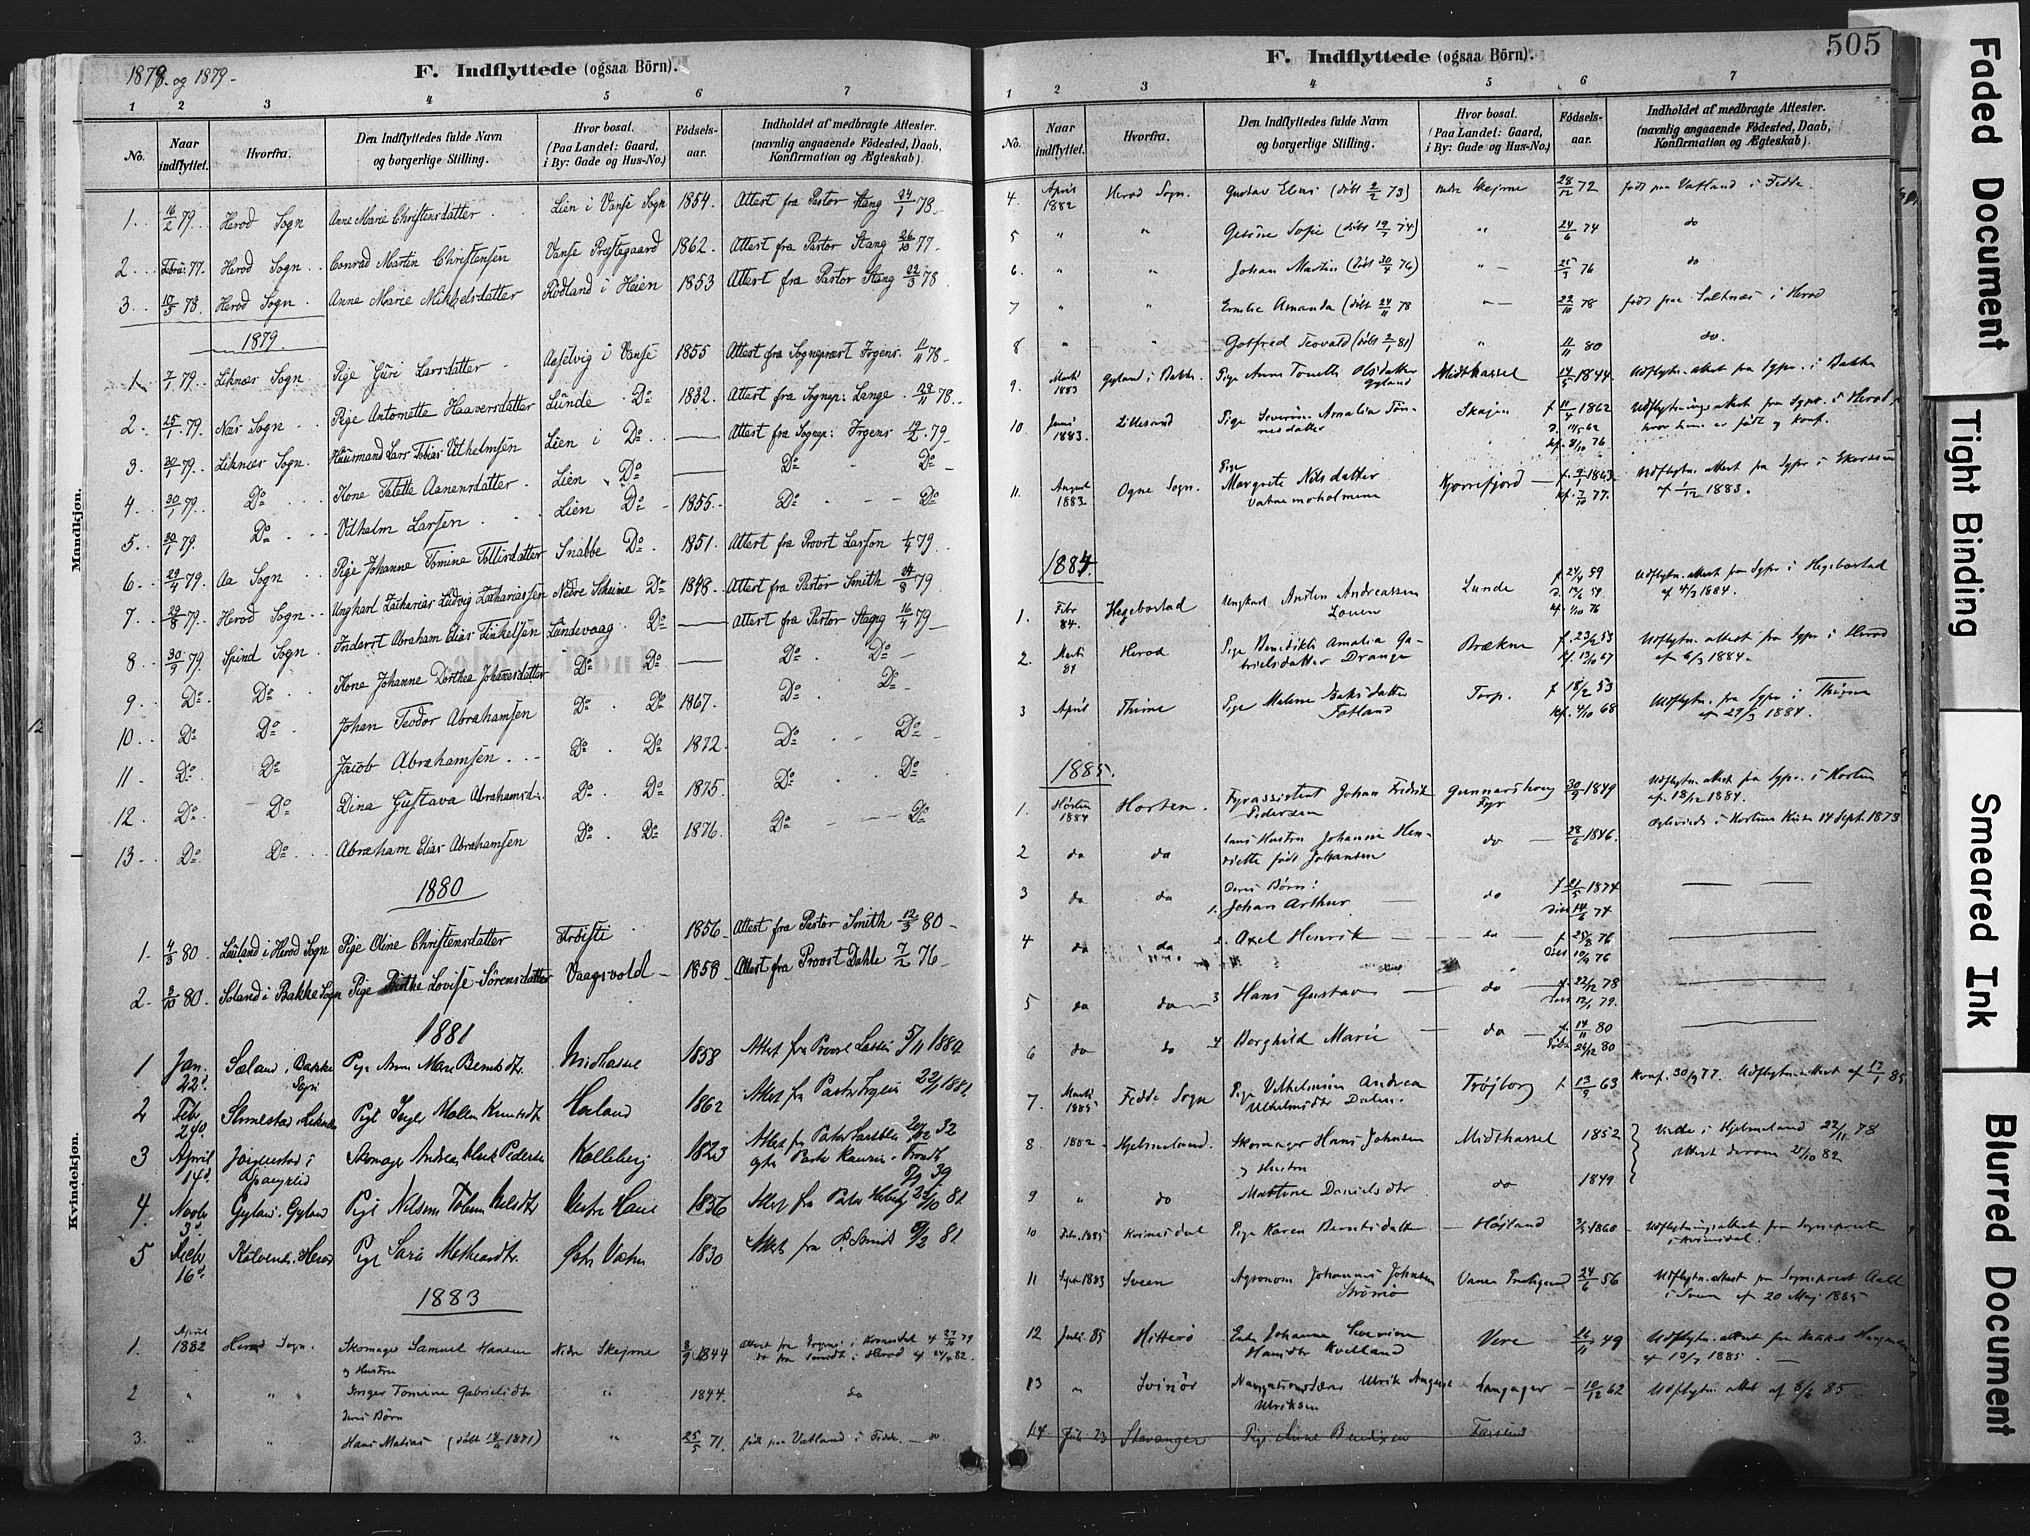 1878 og 1879.
F. Indflyttede (ogsaa Börn).
1 2 3 4 5 6 7
No. Naar indflyttet. Hvorfra. Den Indflyttedes fulde Navn og borgerlige Stilling. Hvor bosat. (Paa Landet: Gaard, i By: Gade og Hus-No.) Fódsels-aar. Indholdet af medbragte Attester. (navnlig angaaende Födested, Daab, Konfirmation og Ægteskab).
Mandkjøn.
Kvindekjøn.
1. 16/2 79. Herod Sogn Anne Marie Christensdatter Lien i Vanse Sogn 1854. Attest fra Pastor Stang 24/1 78.
2. Febru. 77. Herod Sogn Conrad Martin Christensen Vanse Præstegaard 1862. Attest fra Pastor Stang 26/10 77.
3. 78. Herod Sogn. Anne Marie Mikkelsdatter Rødland i Heien 1853 Attest fra Pastor Stang 22/3 78.
1879.
1. 7/1 79. Liknæs Sogn Pige Guri Larsdatter Aaselvig i Vanse 1855 Attest fra Sogneprest Irgens 11/11 78.
2. 25/1 79. Næs Sogn Pige Antonette Haaversdatter Lunde Do 1832. Attest fra Sognep: Lange 29/11 78.
3. 30/1 79. Liknæs Sogn. Huusmand Lars Tobias Vilhelmsen Lien i Do Attest fra Sognep: Irgens 79.
4. 30/1 79. Do Kone Talette Aanensdatter Lien Do Do Do
5. 30/1 79. Do Vilhelm Larsen Lien Do 1855. Do Do
6. 29/4 79. Aa Sogn Pige Johanne Tomine Tollisdatter Snabbe Do 1851. Attest fra Provst Larson 79.
7. 29/8 79. Herod Sogn Ungkarl Zacharias Ludvig Zachariassen Nedre Skeime Do 1848. Attest fra Pastor Smith 79
8. 30/9 79. Spind Sogn Inderst Abraham Elias Tinkelsen Lundevaag Do Attest fra Pastor Stang 16/4 79
9. Do Do Kone Johanne Dorthea Johannesdatter Do Do Do Do
10. Do Do Johan Teodor Abrahamsen Do Do 1867. Do Do
11. Do Do Jacob Abrahamsen Do Do 1872. Do Do
12. Do Do Dina Gustava Abrahamsd. Do Do 1875. Do Do
13. Do Do Abraham Elias Abrahamsen Do Do 1876. Do Do
1880
1. 80 i Herod Sogn Pige Oline Christensdatter Frøisti 1856. Attest fra Pastor Smith 80
2. 80. Soland i Bakke Sogn Pige Lovise Sørensdatter Vaagsvold 1858. Attest fra Provst Dahle 7/2 76
1881
1 Jan. 22d. Sæland i Bakke Sogn Pige Anne Marie Berntsdtr. Midhassel 1858 Attest fra Provst 5/11 1880
2 Febr 24d. Pige Knudsdtr. 1862 Attest fra Pastor Irgens 22/1 1881.
3 April 14d. Skomager Andreas Pedersen Kolleberg 1823 Attest fra Pastor 32
39
4 Novbr 3d. Gyland i Gyland Pige Nilsdtr. Vestre Hauge 1856 Attest fra Pastor 81
5 Decbr 16d. Herod Pige Sara Østre Vatne 1830 Attest fra P. Smidt 81
1883
1. April 1882 Herod Sogn. Skomager Samuel Hansen Nedre Skejme 1844 Attest fra Irgens i Kvinesdal af 79
og Hustru do fra Smidt i Herod af 82.
2 " " Inger Tomine Gabrielsdtr " 1844. do
deres Børn
3. " " Hans Matias (døbt 1871) " 25/5 71. født paa Vatland i Fedde. do
505
F. Indflyttede (ogsaa Börn).
1 2 3 4 5 6 7
No. Naar indflyttet. Hvorfra. Den Indflyttedes fulde Navn og borgerlige Stilling. Hvor bosat. (Paa Landet: Gaard, i By: Gade og Hus-No.) Fódsels-aar. Indholdet af medbragte Attester. (navnlig angaaende Födested, Daab, Konfirmation og Ægteskab).
4. April 1882 Herod Sogn. Gustav Elias (døbt 2/2 73) nedre Skejme 28/12 72 født paa Vatland i Fedde.
5 " " Gesine Sofie (døbt 19/7 74) " 24/6 74 do
6. " " Johan Martin (døbt 30/4 76) " 25/3 76 do
7 " " Emilie Amanda (døbt 24/11 78 " 22/10 78 født paa Saltnæs i Herod
8 " " Gotfred Teovald (døbt 2/1 81) " 11/11 80 do.
9. Marts 1883 Gyland i Bakke. Pige Anne Tonette Olsdatter Gyland Midthassel 14/5 1844. Udflytn. attest fra Sgpr. i Bakke
10 Juni 1883. Lillesand Pige Severine Amalia Tønnesdatter Skajen f 11/4 1862 Udflytningsattest fra Sgpr. i Herod, hvor hun er født og konf.
d. 62
kf. 8/10 76
11. August 1883. Ogne Sogn. Pige Margrete Nilsdatter Vatnemoholmene Kjørrefjord f. 1863. Udflytn. attest fra Sgpr i Ekersund af 1/12 1883.
kf. 7/10 77.
1884.
1. Febr 84. Hegebostad Ungkarl Andreassen Lunde f. 24/4 59 Udflytn. attest fra Sgpr. i Hegebostad af 4/3 1884.
kf. 1/10 76
2. Marts 84 Herod Pige Benedikte Amalia Gabrielsdatter Drange Brækne f. 23/2 53 Udflytn. attest fra Sgpr. i Herod af 6/3 1884.
kf. 13/10 67
3 April Thime Pige Malene Eriksdatter Fotland Torp. f 18/2 53 Udflytn. fra Sgpr. i Thime af 29/3 1884.
kf. 4/10 68
1885.
1. Høsten 1884 Horten. Fyrassistent Johan Fredrik Pedersen Gunnarshoug Fyr 30/9 1849 Udflytn. attest fra Sgpr. i Horten af. 18/12 1884.
Ægteviede i Hortens Kirke 14 Sept. 1873
2 do do hans Hustru Johanne Henriette født Johansen do 28/6 1846.
3 do do deres Børn: 1. Johan Arthur do f 21/5 1874
døbt 14/6 74
4 do do 2. Axel Henrik do f 25/8 76
døbt 10/9 76
5 do do 3 Hans Gustav do f 22/12 78
døbt 12/1 79.
6 do do 4 Borghild Marie do f. 14/11 80
døbt 26/12 80
7. Marts 1885 Fedde Sogn Pige Vilhelmine Andrea Vilhelmsdtr Dalen. Trøjborg f. 13/9 63 Konf. 30/9 77. Udflytn. attest af 17/1 85.
8. 1882 Hjelmeland. Skomager Hans Johnsen Midthassel 1852 Viede i Hjelmeland 22/11 78
og Hustru Attest derom 25/10 82
9 " do Mattine Danielsdtr do 1849
10 Febr. 1885 Kvinesdal Pige Karen Berntsdatter Højland 1860 Udflytningsattest fra Sognepresten i Kvinesdal.
11 Septbr 1883 Sveen Agronom Johannes Johnsen Strømø Vanse Prestegaard 24/6 56 Udflytn. attest fra Sogneprest Aall i Sveen af 20 Maj 1885
12 Juli 85 Hitterø Enke Johanne Severine Hansdtr Kvelland Vere 26/11 49 Udflytn. attest fra af 13/7 1885.
13 " Svinør Navigationslærer Ulrik August Ulriksen Langager 10/12 62 Udflytn. attest af 8/6 85.
14 Juli 23 Stavanger Pige Anne Bendixen Farsund
Faded Document
Tight Binding
Smeared Ink
Blurred Document